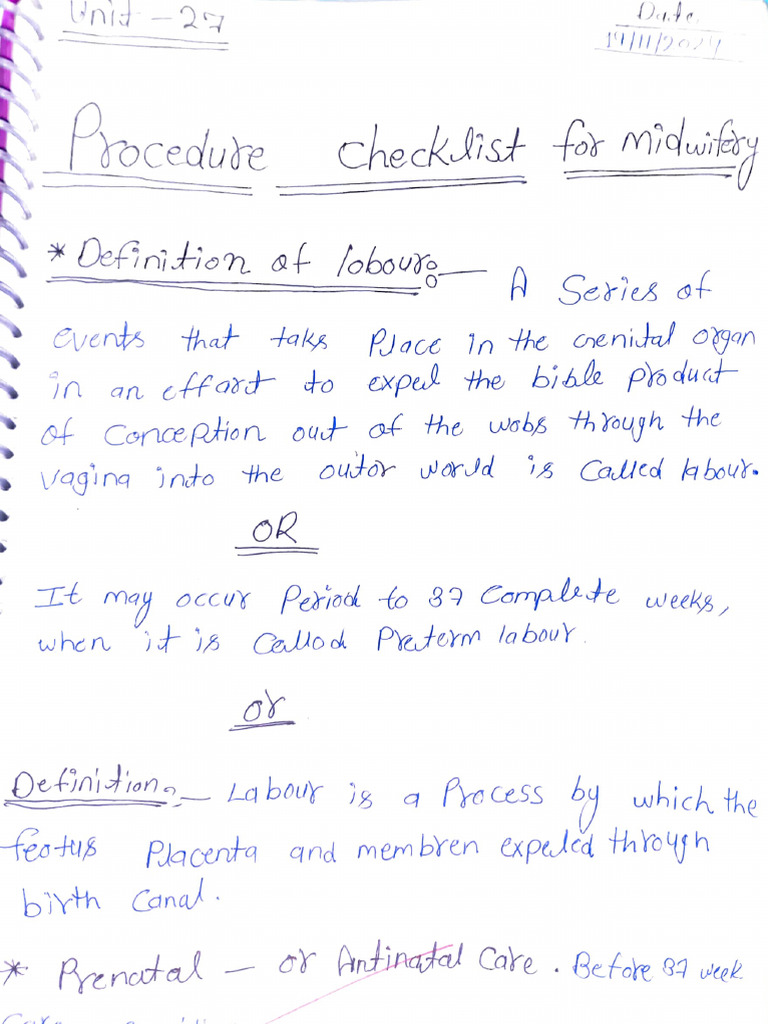 Unit - 27
Date
19/11/2024
Procedure checklist for midwifery
* Definition of lobour:— A Series of
events that taks place in the Genital organ
in an effort to expel the bible product
of Conception out of the wobs through the
vaging into the outor world is Called labour.
OR
It may occur Period to 37 Complete weeks,
when it is Called Preterm labour.
or
Definition:— Labour is a Process by which the
feotus Placenta and membren expeled through
birth Canal.
* Prenatal — or Antinatal Care. Before 37 week